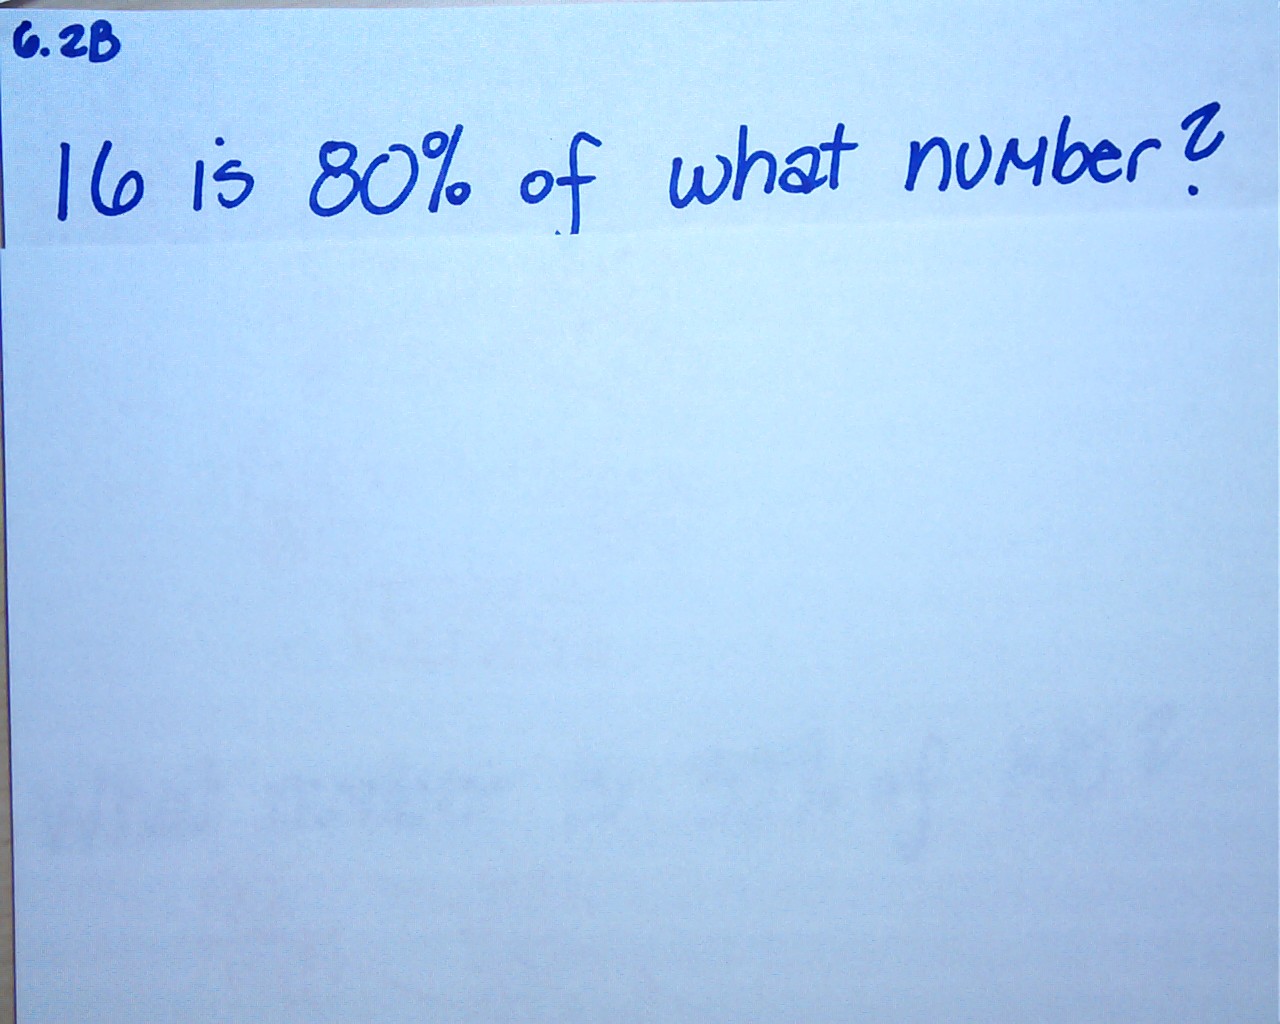 6.2B
16 is 80% of what number?